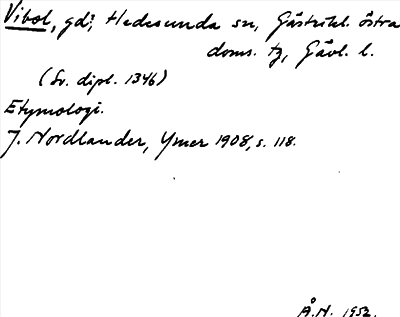 Vibol, gd i Hedesunda sn, Gästrikl. östra
doms. tg, Gävl. l.
(Sv. dipl. 1346)
Etymologi.
J. Nordlander, Ymer 1908, s. 118.
Å.N. 1952.